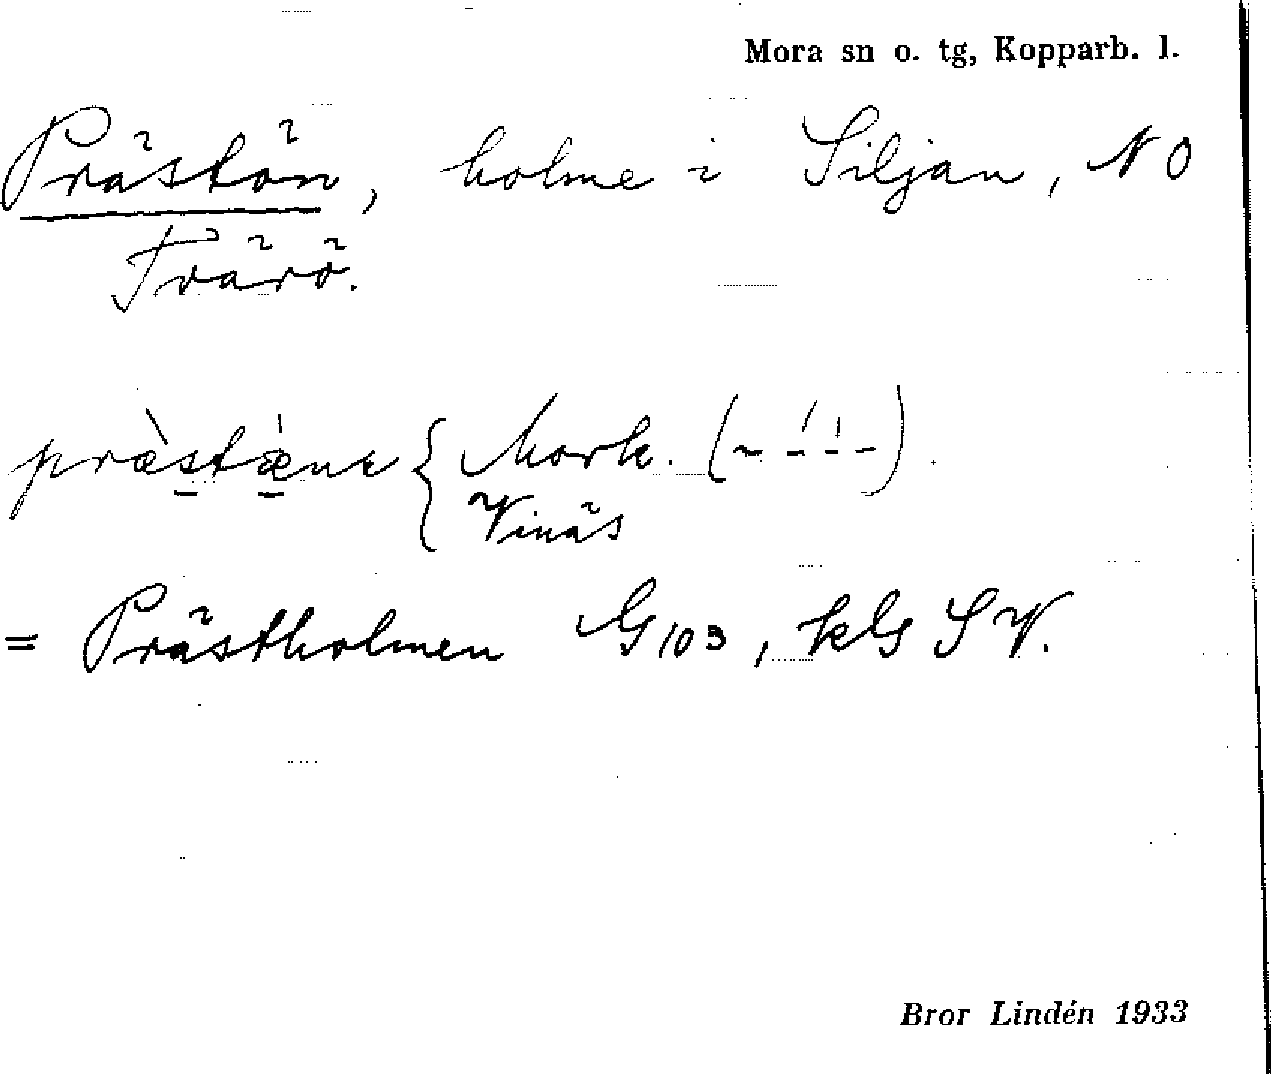 Mora sn o. tg, Kopparb. l.
Prästön, holme i Siljan, NO
Tvärö.
præ̀stæ̀ne { Mork. (- -́ -́ -).
Vinäs
= Prästholmen G103, kls SV.
Bror Lindén 1933